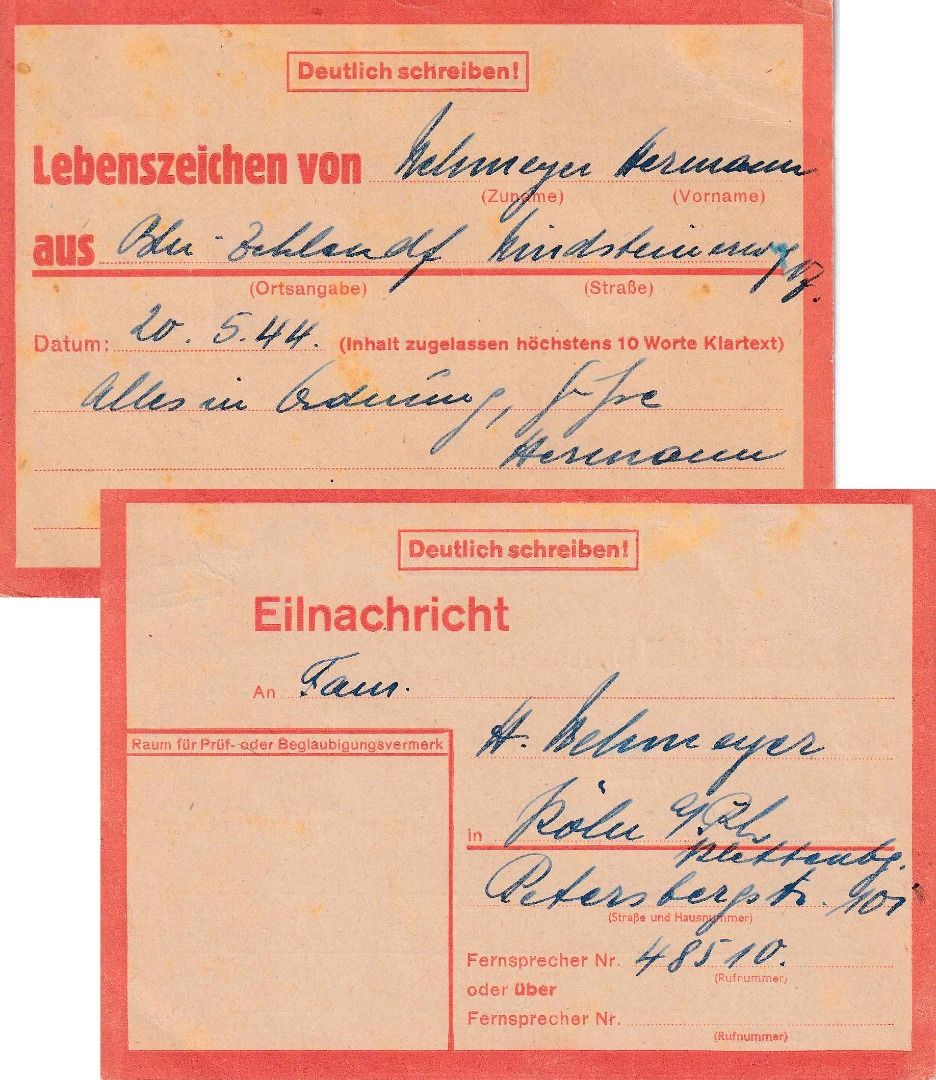 Deutlich schreiben!
Lebenszeichen von Wehmeyer Hermann
(Zuname) (Vorname)
aus Bln-Zehlendf
(Ortsangabe) (Straße)
Datum: 20. 5. 44. (Inhalt zugelassen höchstens 10 Worte Klartext)
Alles in Ordnung,
Hermann
Deutlich schreiben!
Eilnachricht
An Fam.
Raum für Prüf- oder Beglaubigungsvermerk
H. Wehmeyer
in Köln a/Rh
Klettenbg.
Petersbergstr. 101
(Straße und Hausnummer)
Fernsprecher Nr. 48510.
(Rufnummer)
oder über
Fernsprecher Nr.
(Rufnummer)